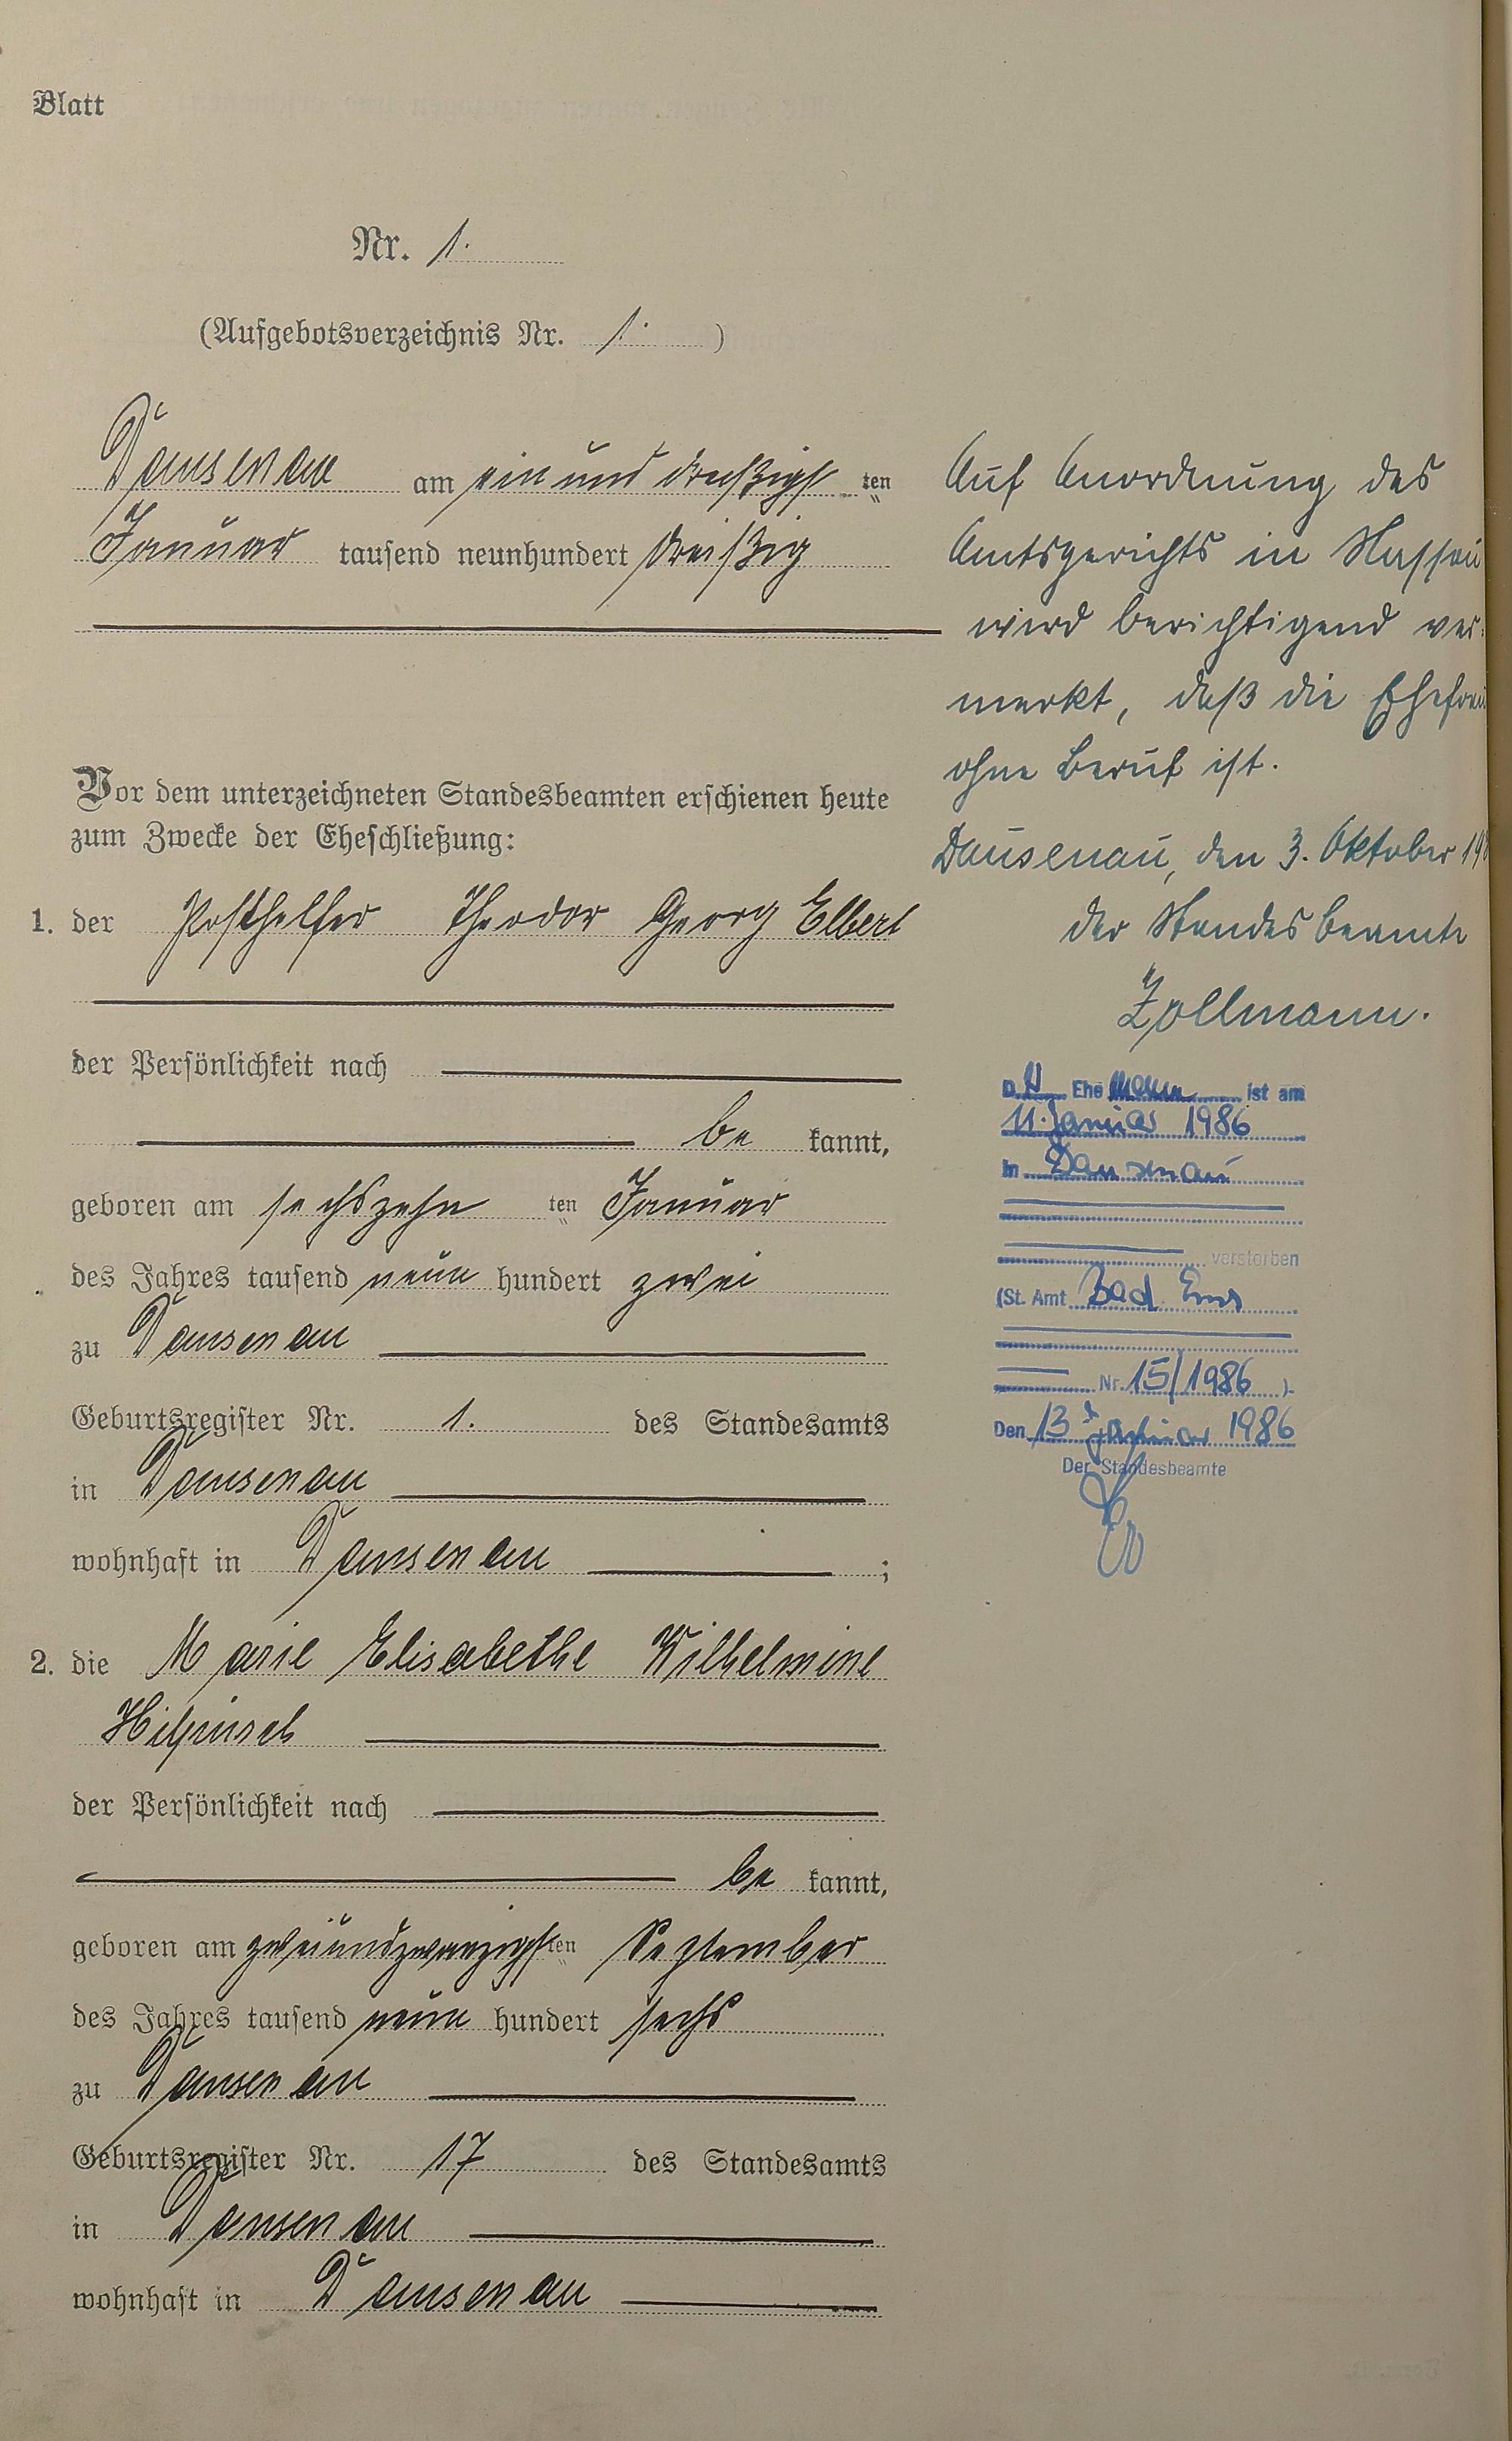 Blatt
Nr. 1.
(Aufgebotsverzeichnis Nr. 1. )
Dausenau am ein und dreißigsten
Januar tausend neunhundert dreißig
Vor dem unterzeichneten Standesbeamten erschienen heute
zum Zwecke der Eheschließung:
1. der Posthelfer Theodor Georg Elbert
der Persönlichkeit nach
be kannt,
geboren am sechszehn ten Januar
des Jahres tausend neun hundert zwei
zu Dausenau
Geburtsregister Nr. 1. des Standesamts
in Dausenau
wohnhaft in Dausenau ;
2. die Marie Elisabethe Wilhelmine
der Persönlichkeit nach
be kannt,
geboren am zweiundzwanzigsten September
des Jahres tausend neun hundert sechs
zu Dausenau
Geburtsregister Nr. 17 des Standesamts
in Dausenau
wohnhaft in Dausenau
Auf Anordnung des
Amtsgerichts in Nassau
wird berichtigend ver-
merkt, daß die Ehefrau
ohne Beruf ist.
Dausenau, den 3. Oktober
Der Standesbeamte
Zollmann.
D er Ehe mann ist am
11. Januar 1986
in Dausenau
verstorben
(St. Amt Bad Ems
Nr. 15/1986 ).
Den 13. Januar 1986
Der Standesbeamte